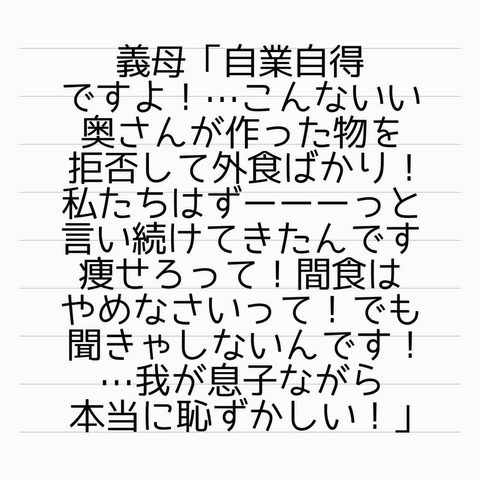 義母「自業自得
ですよ！…こんないい
奥さんが作った物を
拒否して外食ばかり！
私たちはずーーーっと
言い続けてきたんです
痩せろって！間食は
やめなさいって！でも
聞きゃしないんです！
…我が息子ながら
本当に恥ずかしい！」